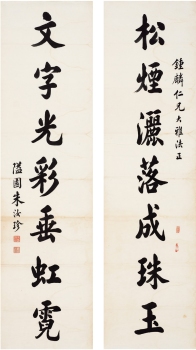 鍾麟仁兄大雅法正
松煙灑落成珠玉
文字光彩垂虹霓
隘園朱汝珍